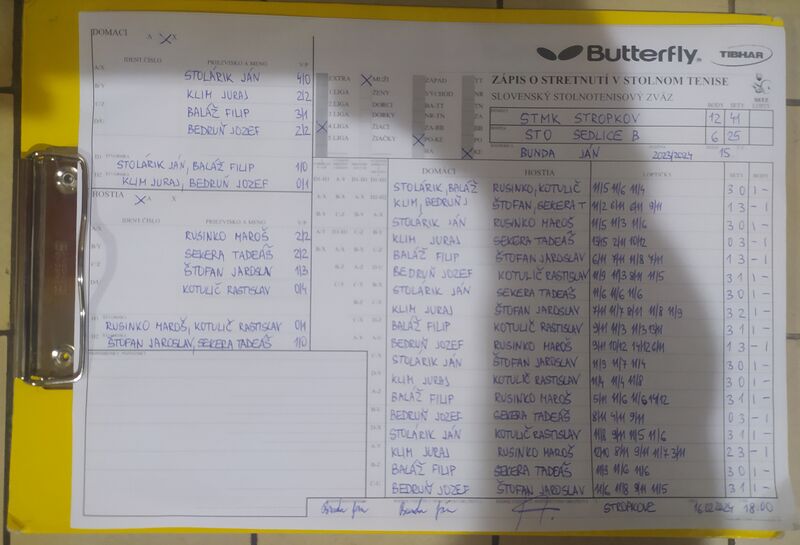 DOMACI A X
IDENT.ČÍSLO PRIEZVISKO A MENO V/P
A/X STOLÁRIK JÁN 4/0
B/Y KLIM JURAJ 2/2
C/Z BALÁŽ FILIP 3/1
D/U BEDRUŇ JOZEF 2/2
D1 ŠTVORHRA STOLÁRIK JÁN, BALÁŽ FILIP 1/0
D2 KLIM JURAJ, BEDRUŇ JOZEF 0/1
HOSTIA A X
IDENT.ČÍSLO PRIEZVISKO A MENO V/P
A/X RUSINKO MAROŠ 2/2
B/Y SEKERA TADEÁŠ 2/2
C/Z ŠTOFAN JAROSLAV 1/3
KOTULIČ RASTISLAV 0/4
RUSINKO MAROŠ, KOTULIČ RASTISLAV 0/1
ŠTOFAN JAROSLAV, SEKERA TADEÁŠ 1/0
Butterfly TIBHAR
ZÁPIS O STRETNUTÍ V STOLNOM TENISE
SLOVENSKÝ STOLNOTENISOVÝ ZVÄZ
EXTRA MUŽI ZÁPAD TT
1.LIGA ŽENY VÝCHOD NR
2.LIGA DORCI BA-TT TN
3.LIGA DORKY TN-NR
4.LIGA ŽIACI ZA-BB
5.LIGA ŽIAČKY PO-KE PO
BA KE
BODY SETY
STMK STROPKOV 12 41
STO SEDLICE B 6 25
BUNDA JÁN 2023/2024 15
DOMÁCI HOSTIA LOPTIČKY SETY BODY
STOLÁRIK, BALÁŽ RUSINKO, KOTULIČ 11/5 11/6 11/4 3 0 1 -
KLIM, BEDRUŇ J ŠTOFAN, SEKERA T 11/2 6/11 6/11 9/11 1 3 - 1
STOLÁRIK JÁN RUSINKO MAROŠ 11/5 11/3 11/6 3 0 1 -
KLIM JURAJ SEKERA TADEÁŠ 2/11 10/12 0 3 - 1
BALÁŽ FILIP ŠTOFAN JAROSLAV 6/11 7/11 11/8 7/11 1 3 - 1
BEDRUŇ JOZEF KOTULIČ RASTISLAV 11/9 11/3 8/11 11/5 3 1 1 -
STOLÁRIK JÁN SEKERA TADEÁŠ 11/6 11/6 11/6 3 0 1 -
KLIM JURAJ ŠTOFAN JAROSLAV 7/11 11/7 8/11 11/8 11/9 3 2 1 -
BALÁŽ FILIP KOTULIČ RASTISLAV 9/11 11/3 11/3 13/11 3 1 1 -
BEDRUŇ JOZEF RUSINKO MAROŠ 9/11 10/12 14/12 6/11 1 3 - 1
STOLÁRIK JÁN ŠTOFAN JAROSLAV 11/9 11/7 11/4 3 0 1 -
KLIM JURAJ KOTULIČ RASTISLAV 11/4 11/4 11/8 3 0 1 -
BALÁŽ FILIP RUSINKO MAROŠ 5/11 11/6 11/6 14/12 3 1 1 -
BEDRUŇ JOZEF SEKERA TADEÁŠ 8/11 4/11 9/11 0 3 - 1
STOLÁRIK JÁN KOTULIČ RASTISLAV 11/8 9/11 11/5 11/6 3 1 1 -
KLIM JURAJ RUSINKO MAROŠ 12/10 8/11 9/11 11/7 3/11 2 3 - 1
BALÁŽ FILIP SEKERA TADEÁŠ 11/9 11/6 11/6 3 0 1 -
BEDRUŇ JOZEF ŠTOFAN JAROSLAV 11/6 11/8 9/11 11/5 3 1 1 -
STROPKOVE 16.02.2024 18:00